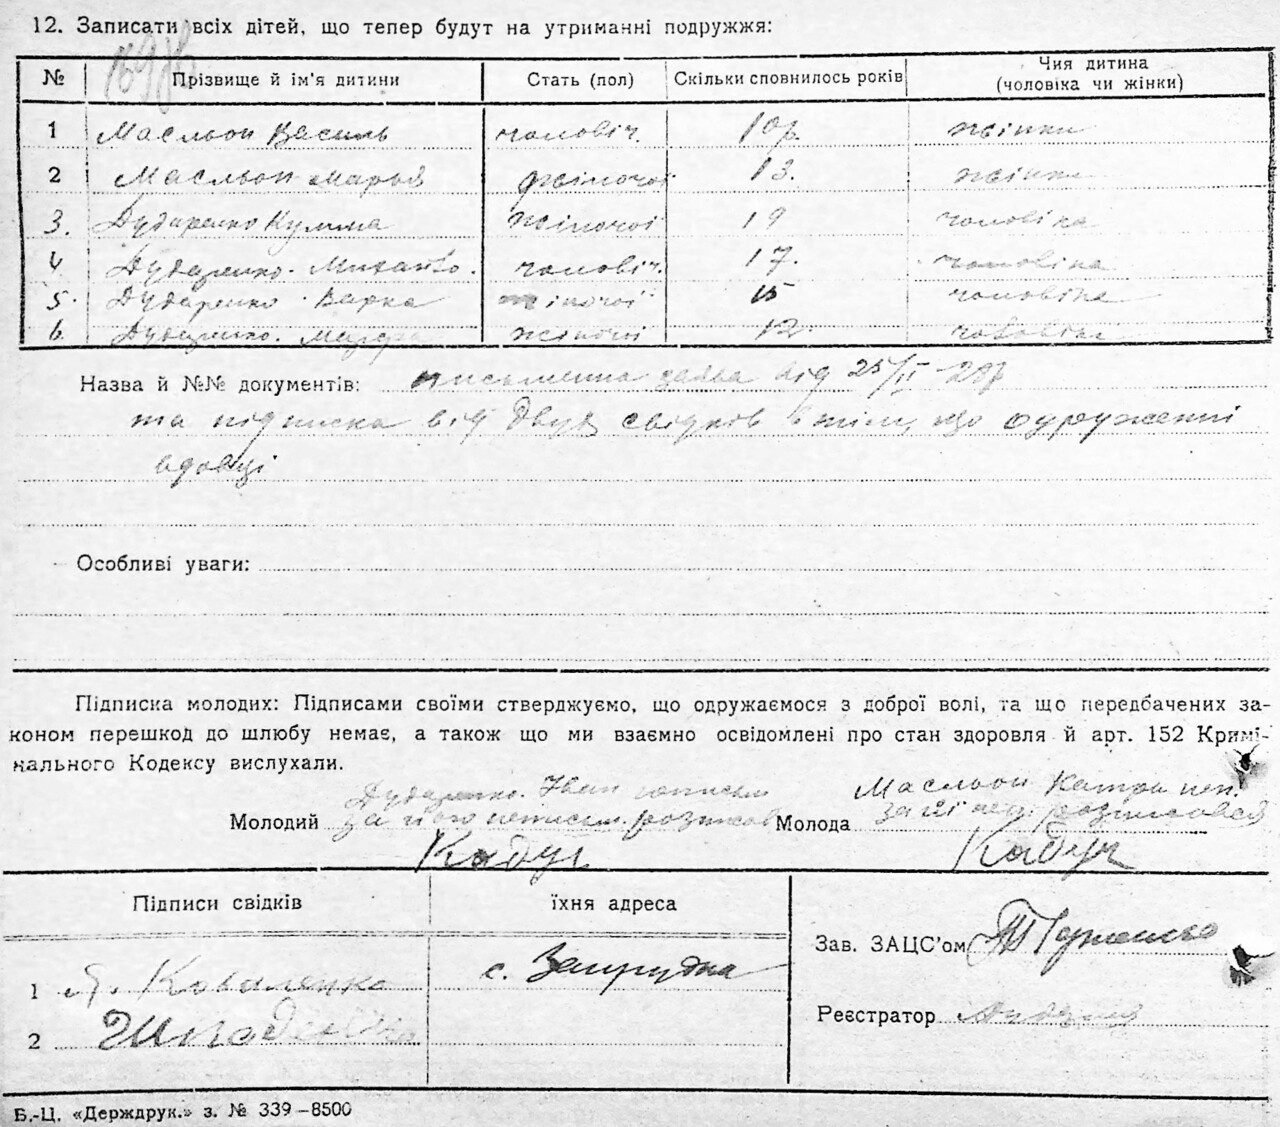 12. Записати всіх дітей, що тепер будут на утриманні подружжя:
№ Прізвище й ім'я дитини Стать (пол) Скільки сповнилось років Чия дитина (чоловіка чи жінки)
1 Масльон Василь чоловіч. 10р. жінки
2 Масльон Марья жіночоі 13. жінки
3. Дударенко жіночоі 19 чоловіка
4 Дударенко. Михайло. чоловіч. 17. чоловіка
5. Дударенко Варка жіночоі 15 чоловіка
6. Дударенко. жіночоі 12. чоловіка
Назва й №№ документів: письменна заява від 25/II-29р
та підписка від двух свідків в тім, що одруженні
вдовці
Особливі уваги:
Підписка молодих: Підписами своїми стверджуємо, що одружаємося з доброї волі, та що передбачених за-
коном перешкод до шлюбу немає, а також що ми взаємно освідомлені про стан здоровля й арт. 152 Кримі-
нального Кодексу вислухали.
Дударенко. Іван Масльон Катри неп.
Молодий за його неписьм. розписов Молода за іі неп. розписовся
Кадуч Кадуч
Підписи свідків їхня адреса
Зав. ЗАЦС'ом
1 Я. Коваленко с. Запрудка
Реєстратор
2
Б.-Ц. «Держдрук.» з. № 339–8500